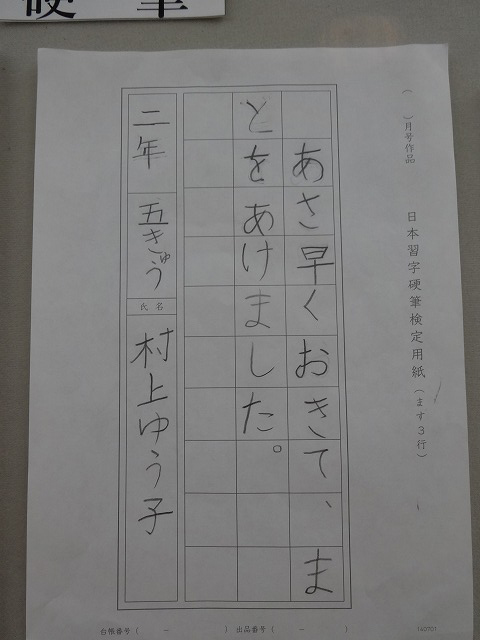 硬筆
(　)月号作品
日本習字硬筆検定用紙(ます3行)
あさ早くおきて、ま
とをあけました。
二年 五きゅう 氏名 村上ゆう子
台帳番号(　－　) 出品番号(　－　)